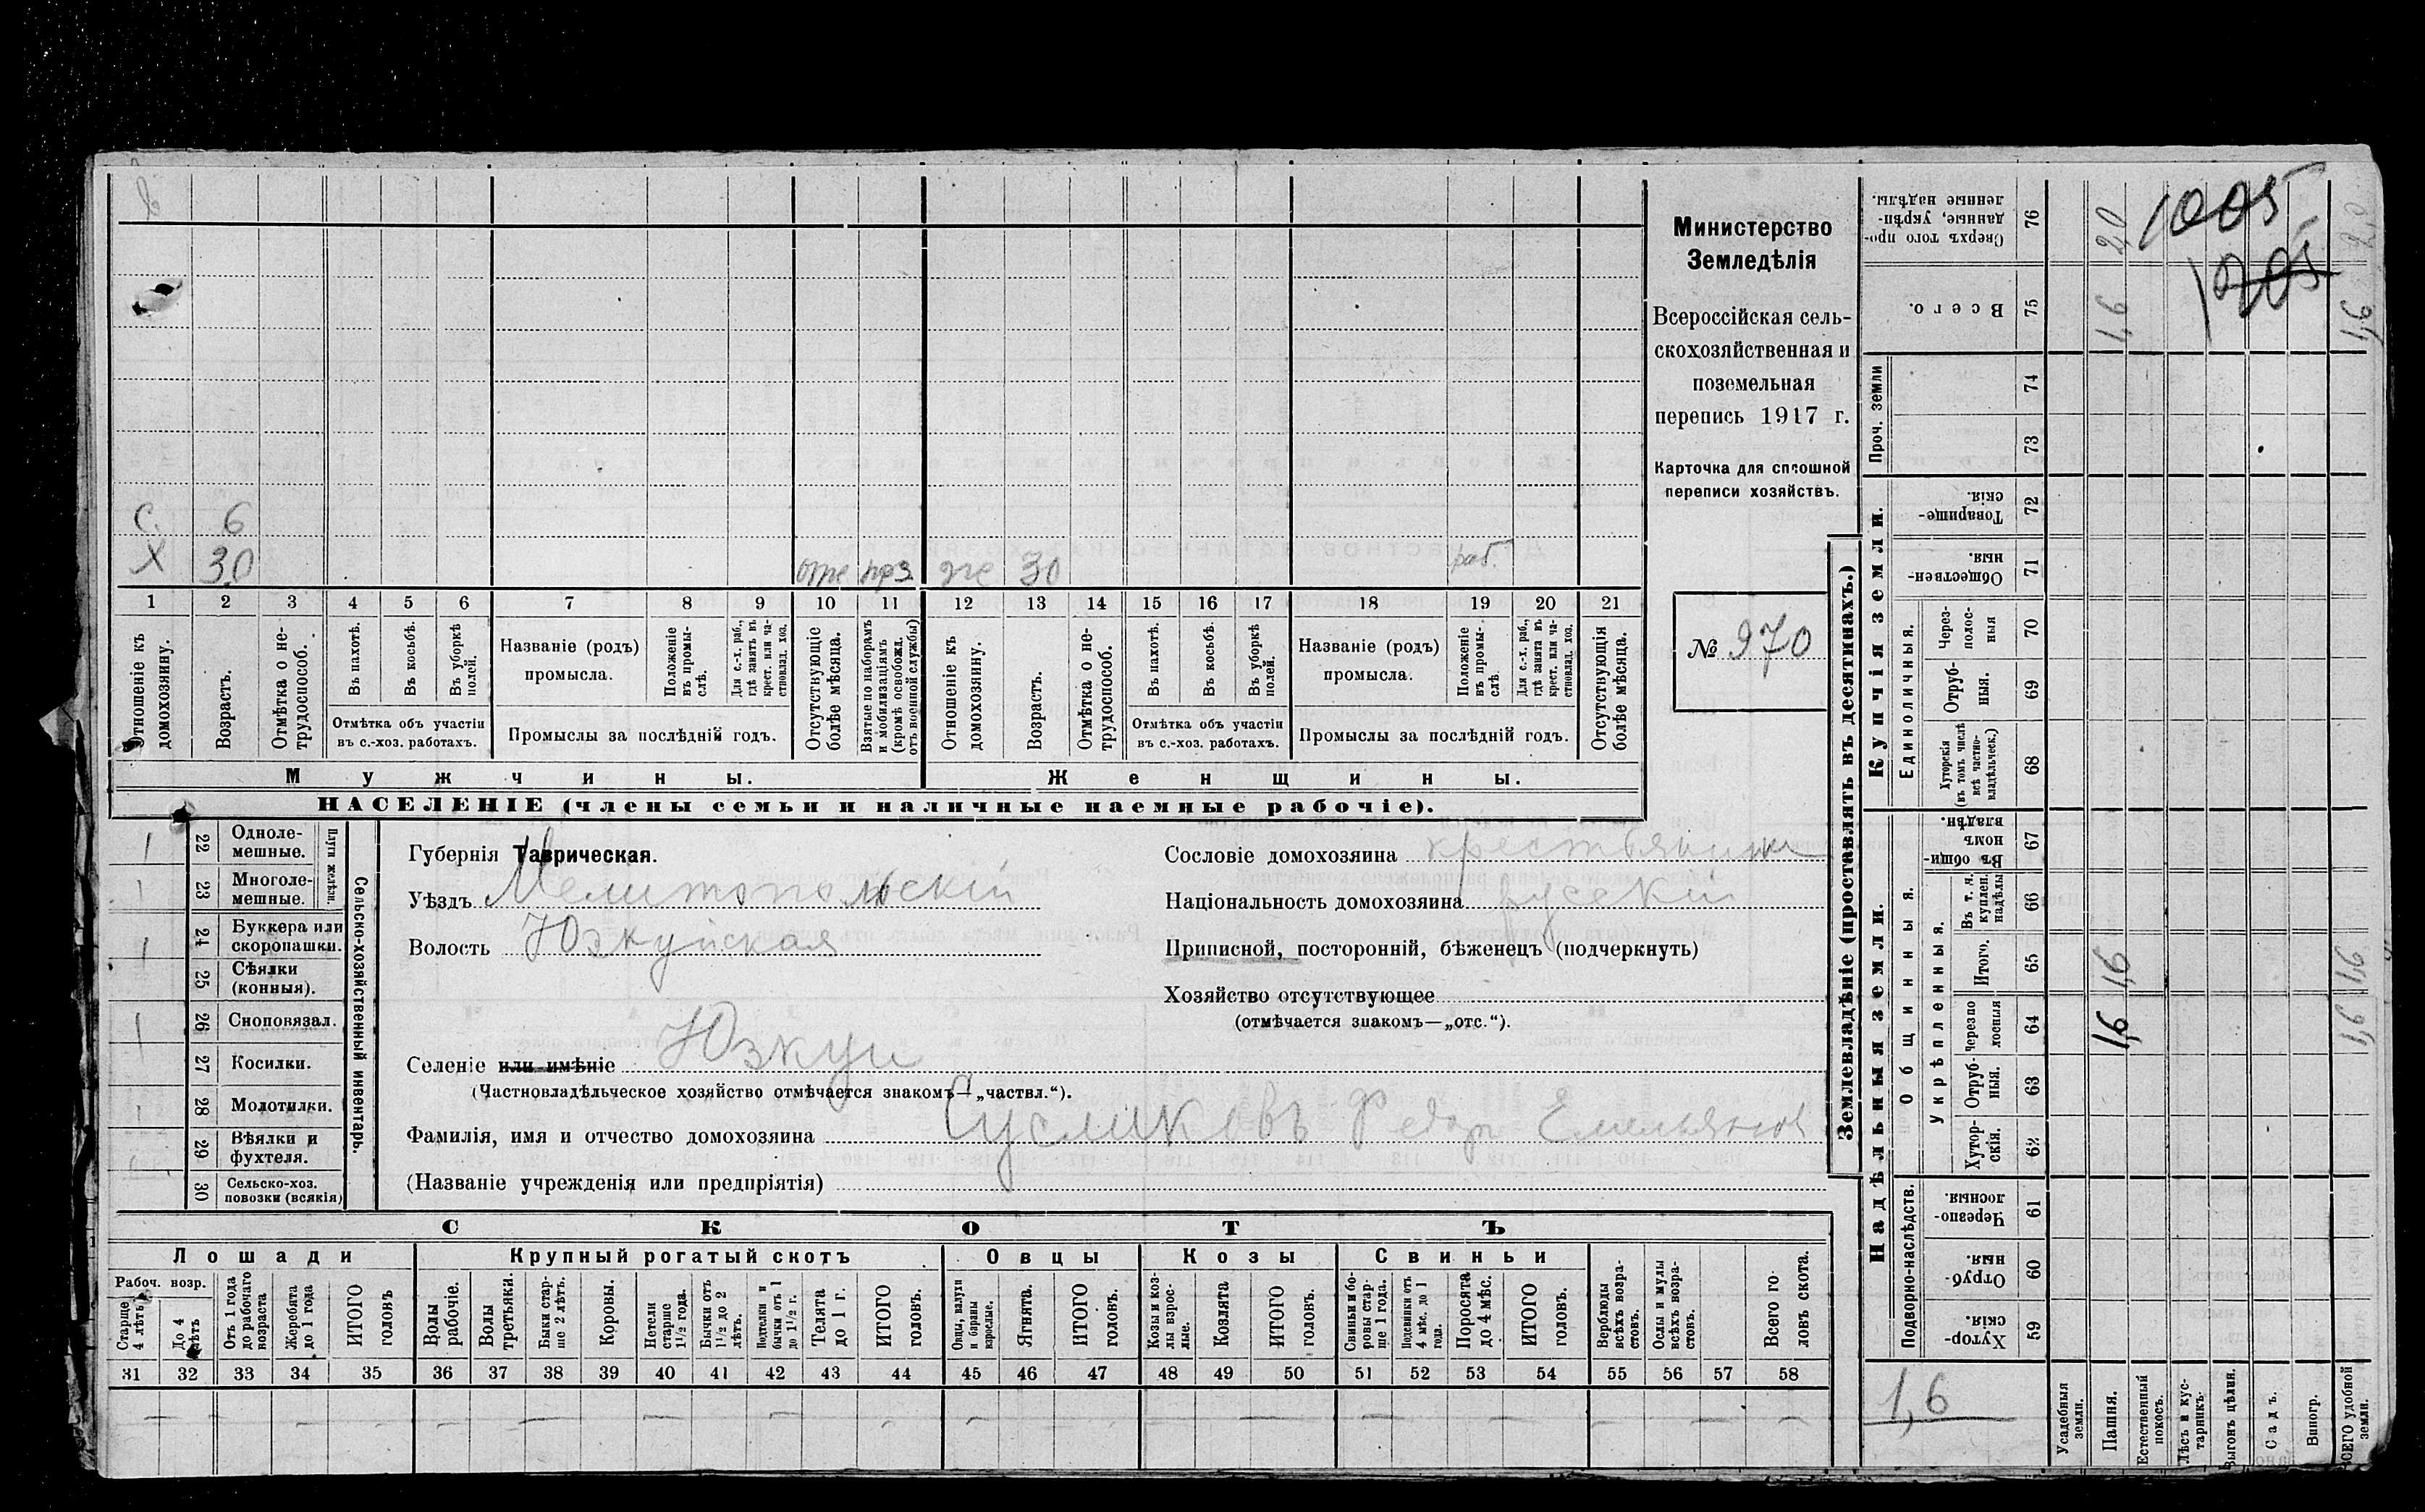 с. 6
х 30 отс приз же 30 раб.
1 2 3 4 5 6 7 8 9 10 11 12 13 14 15 16 17 18 19 20 21
Отношеніе къ домохозяину.
Возрастъ.
Отмѣтка о не-трудоспособ.
Въ пахотѣ.
Въ косьбѣ.
Въ уборкѣ полей.
Отмѣтка объ участіи
въ с.-хоз. работахъ.
Названіе (родъ)
промысла.
Положеніе въ промы-слѣ.
Для с.-х. раб., гдѣ занятъ въ крест. или ча-стновлад. хоз.
Промыслы за послѣдній годъ.
Отсутствующіе болѣе мѣсяца.
Взятые по наборамъ и мобилизаціямъ (кромѣ освобожд. отъ военной службы)
Отношеніе къ домохозяину.
Возрастъ.
Отмѣтка о не-трудоспособ.
Въ пахотѣ.
Въ косьбѣ.
Въ уборкѣ полей.
Отмѣтка объ участіи
въ с.-хоз. работахъ.
Названіе (родъ)
промысла.
Положеніе въ промы-слѣ.
Для с.-х. раб., гдѣ занята въ крест. или ча-стновлад. хоз.
Промыслы за послѣдній годъ.
Отсутствующія болѣе мѣсяца.
Мужчины. Женщины.
НАСЕЛЕНІЕ (члены семьи и наличные наемные рабочіе).
Министерство
Земледѣлія
Всероссійская сель-
скохозяйственная и
поземельная
перепись 1917 г.
Карточка для сплошной
переписи хозяйствъ.
№ 970
22 Одноле-мешные.
23 Многоле-мешные.
Плуги желѣзн.
24 Буккера или скоропашки.
25 Сѣялки (конныя).
26 Сноповязал.
27 Косилки.
28 Молотилки.
29 Вѣялки и фухтеля.
30 Сельско-хоз. повозки (всякія)
Сельско-хозяйственный инвентарь.
Губернія Таврическая.
Уѣздъ Мелитопольскій
Волость Юзкуйская
Селеніе или имѣніе Юзкуи
(Частновладѣльческое хозяйство отмѣчается знакомъ—„частвл.“).
Фамилія, имя и отчество домохозяина Сусликовъ Федор Емельянов
(Названіе учрежденія или предпріятія)
Сословіе домохозяина крестьянин
Національность домохозяина русскій
Приписной, посторонній, бѣженецъ (подчеркнуть)
Хозяйство отсутствующее
(отмѣчается знакомъ—„отс.“).
СКОТЪ
Лошади Крупный рогатый скотъ Овцы Козы Свиньи
Рабоч. возр.
Старше 4 лѣтъ
До 4 лѣтъ
Отъ 1 года до рабочаго возраста
Жеребята до 1 года
ИТОГО головъ
Волы рабочіе.
Волы третьяки.
Быки стар-ше 2 лѣтъ.
Коровы.
Нетели старше 1½ года.
Бычки отъ 1½ до 2 лѣтъ.
Подтелки и бычки отъ 1 до 1½ г.
Телята до 1 г.
ИТОГО головъ.
Овцы, валухи и бараны взрослые.
Ягнята.
ИТОГО головъ.
Козы и коз-лы взрос-лые.
Козлята
ИТОГО головъ.
Свиньи и бо-ровы стар-ше 1 года.
Подсвинки отъ 4 мѣс. до 1 года.
Поросята до 4 мѣс.
ИТОГО головъ.
Верблюды всѣхъ возра-стовъ.
Ослы и мулы всѣхъ возра-стовъ.
Всего го-ловъ скота.
31 32 33 34 35 36 37 38 39 40 41 42 43 44 45 46 47 48 49 50 51 52 53 54 55 56 57 58
Землевладѣніе (проставлять въ десятинахъ.)
Надѣльныя земли. Купчія земли. Проч. земли
Подворно-наслѣдств.
Общинныя.
Укрѣпленныя.
Единоличныя.
Хутор-скія. 59
Отруб-ныя. 60
Черезпо-лосныя. 61
Хутор-скія. 62
Отруб-ныя. 63
Черезпо-лосныя 64 1,6 1,6
Итого. 65 1,6 1,6
Въ т. ч. куплен. надѣлы 66
Въ общин-номъ владѣн. 67
Хуторскія (въ томъ числѣ всѣ частно-владѣльческ.) 68
Отруб-ныя. 69
Через-полос-ныя 70
Обществен-ныя 71
Товарище-скія. 72
73
74
Всего. 75 1,6 1,6
Сверхъ того про-данные, укрѣп-ленные надѣлы. 76
1005
1205
1,6
Усадебныя земли.
Пашня.
Естественный покосъ.
Лѣсъ и кус-тарникъ.
Выгонъ цѣлин.
Садъ.
Виногр.
ВСЕГО удобной земли.